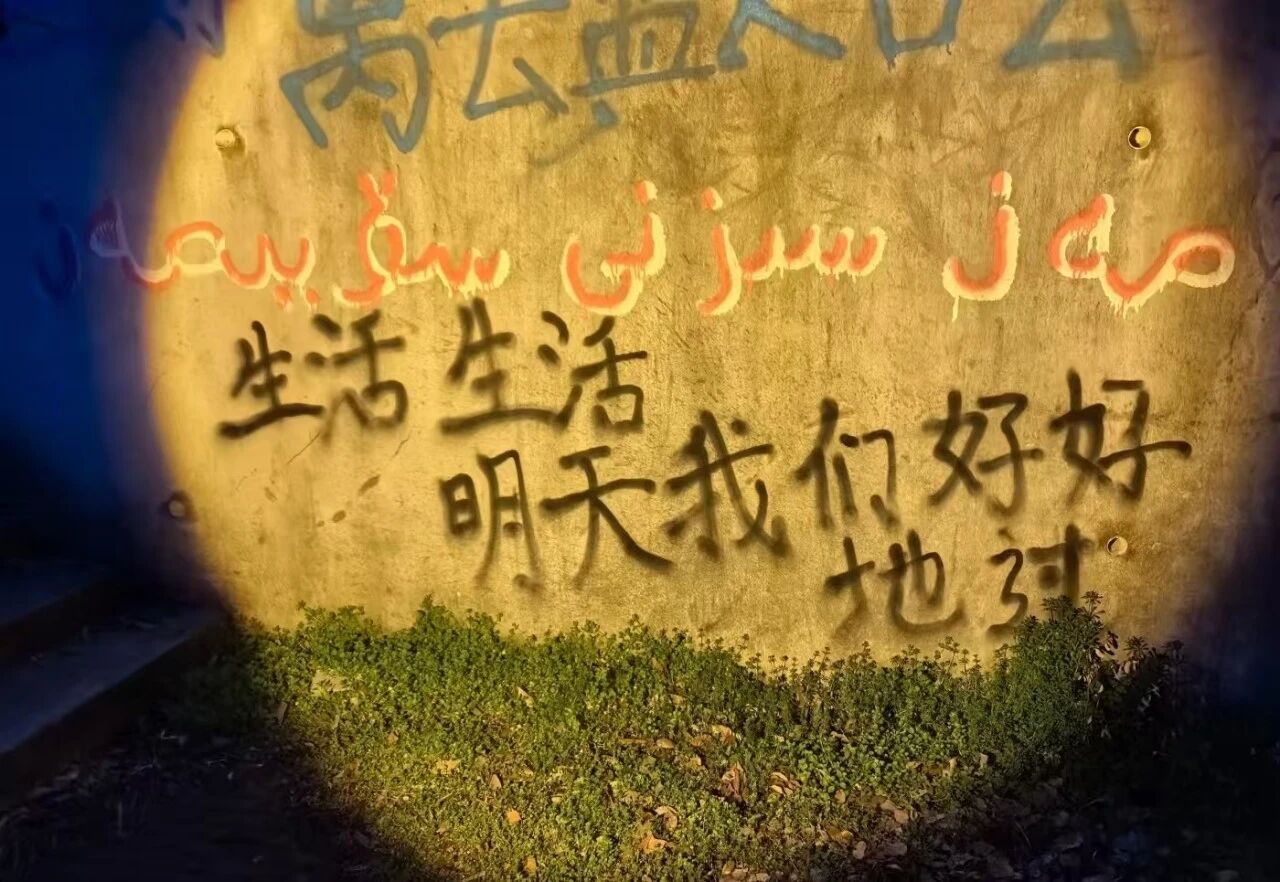 离去
مەن سىزنى سۆيىمەن
生活生活
明天我们好好
地过